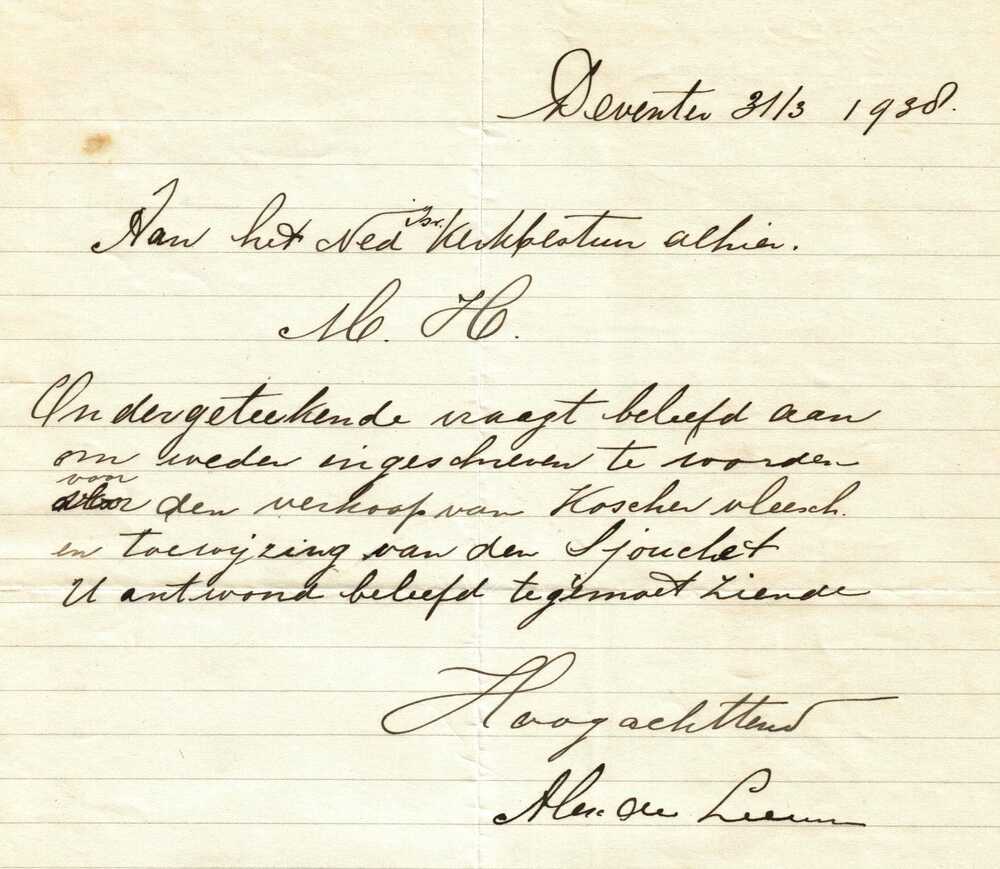 Deventer 31/3 1938.
Aan het Ned Isr. Kerkbestuur alhier.
M. H.
Ondergeteekende vraagt beleefd aan
om weder ingeschreven te worden
voor den verkoop van Koscher vleesch.
en toewijzing van den Sjouchet
U antwoord beleefd tegemoet ziende
Hoogachttend
Alex de Leeuw